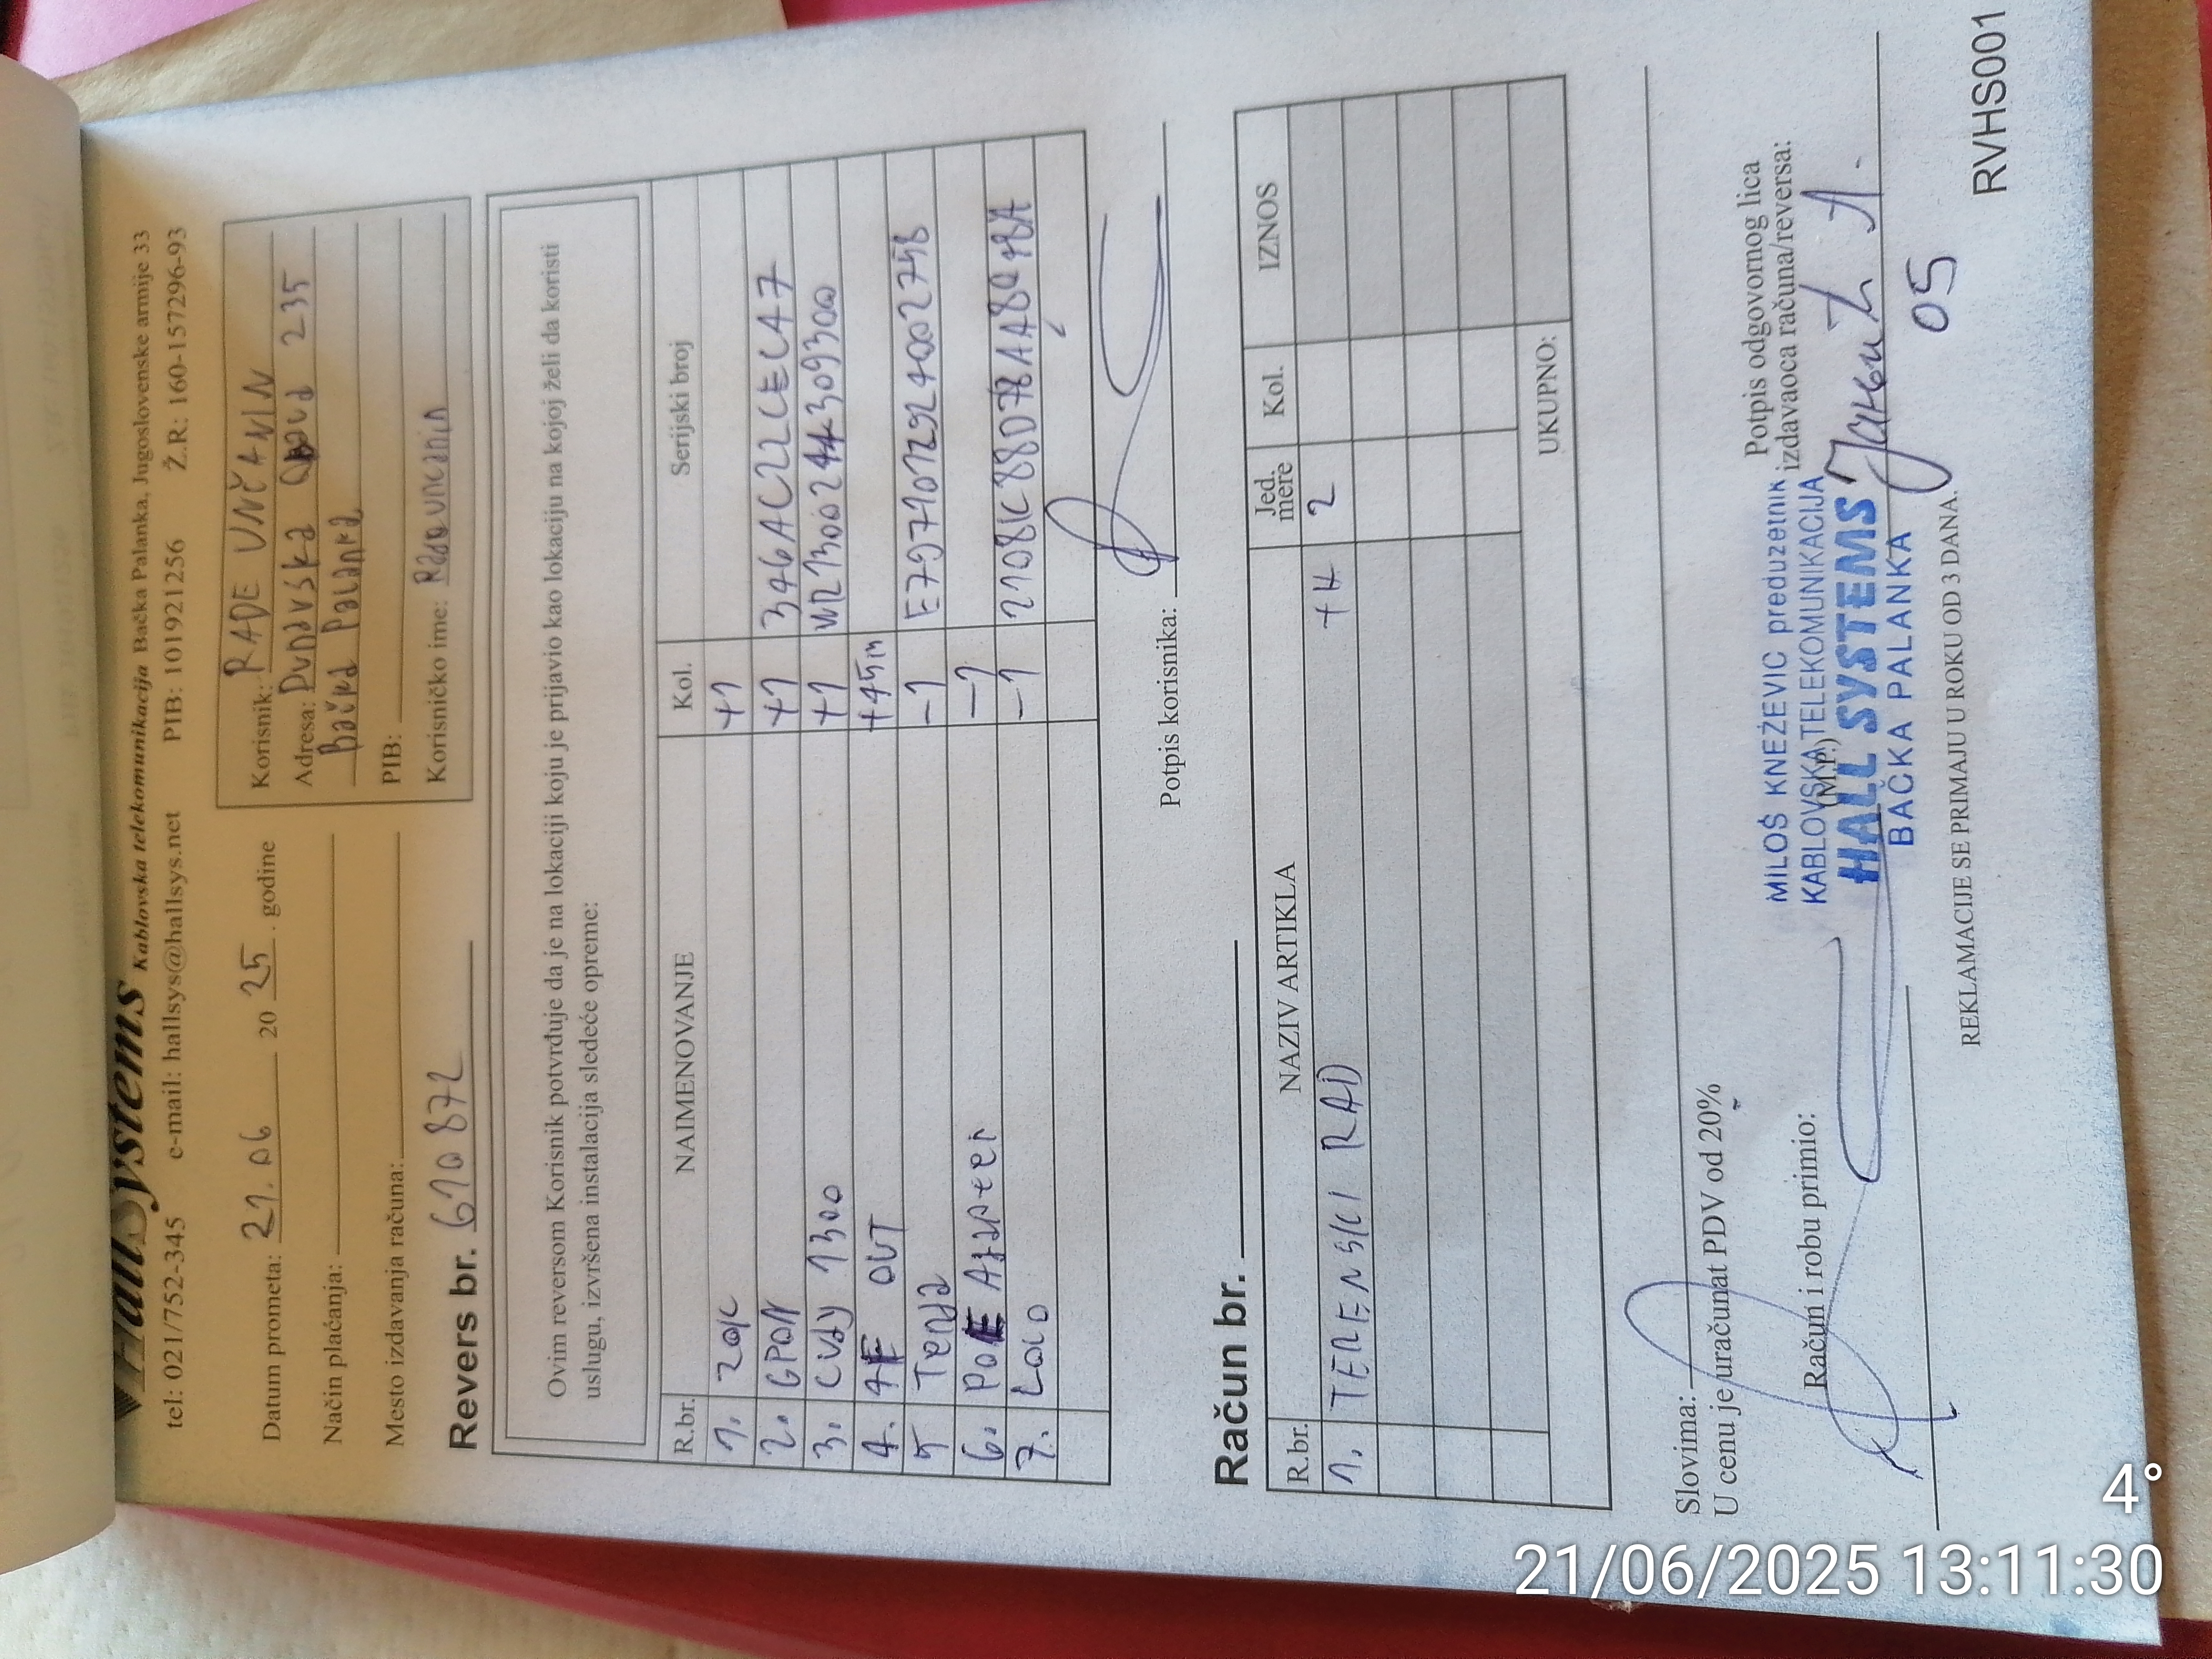 HallSystems Kablovska telekomunikacija Bačka Palanka, Jugoslovenske armije 33
tel: 021/752-345 e-mail: hallsys@hallsys.net PIB: 101921256 Ž.R.: 160-157296-93
Datum prometa: 21.06 20 25 . godine
Način plaćanja:
Mesto izdavanja računa:
Korisnik: RADE UNČANIN
Adresa: Dunavska 235
Bačka Palanka
PIB:
Korisničko ime: Radouncanin
Revers br. 610872
Ovim reversom Korisnik potvrđuje da je na lokaciji koju je prijavio kao lokaciju na kojoj želi da koristi
uslugu, izvršena instalacija sledeće opreme:
R.br. NAIMENOVANJE Kol. Serijski broj
1. ZOK +1
2. GPON +1 346AC22CEC47
3. 1300 +1
4. OUT +45m
5 Tenda -1
6. POE -1
7. Loco -1
Potpis korisnika:
Račun br.
R.br. NAZIV ARTIKLA Jed. mere Kol. IZNOS
1. TERENSKI RAD +H 2
UKUPNO:
Slovima:
U cenu je uračunat PDV od 20%
Račun i robu primio:
Potpis odgovornog lica
izdavaoca računa/reversa:
(M.P.)
MILOŠ KNEŽEVIĆ preduzetnik
KABLOVSKA TELEKOMUNIKACIJA
HALL SYSTEMS
BAČKA PALANKA
05
REKLAMACIJE SE PRIMAJU U ROKU OD 3 DANA.
RVHS001
4°
21/06/2025 13:11:30